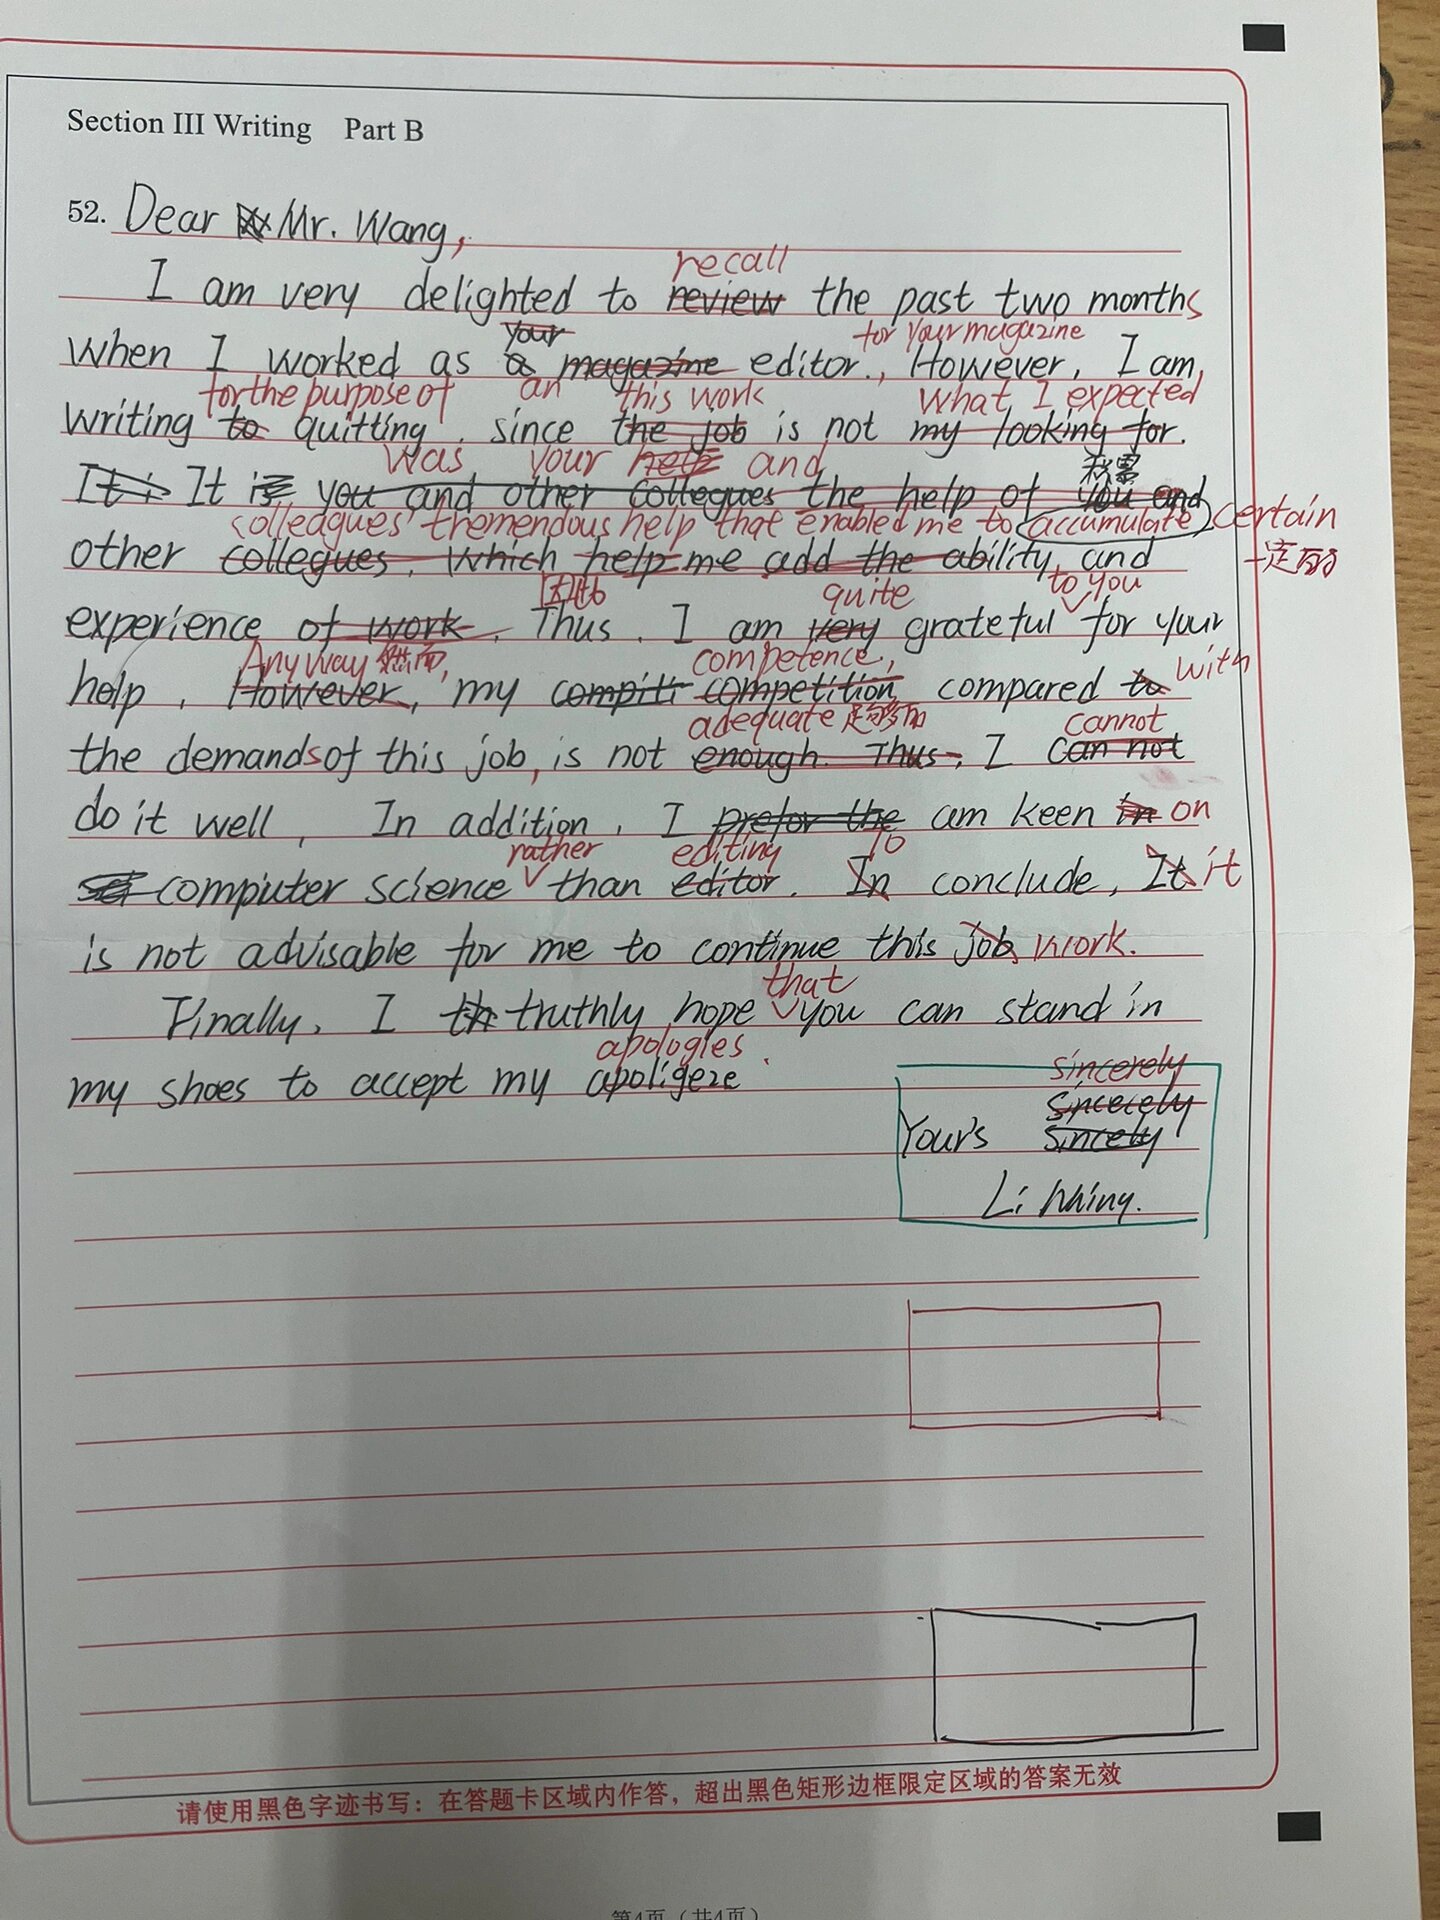 Section III Writing Part B
52. Dear Mr. Wang,
recall
I am very delighted to review the past two months
your for your magazine
when I worked as a magazine editor., However, I am
for the purpose of an this work what I expected
writing to quitting, since the job is not my looking for.
was your help and 积累
It i It is you and other collegues the help of you and
colleagues' tremendous help that enabled me to accumulate certain
other collegues, which help me add the ability, and 一定的
因此 quite to you
experience of work. Thus, I am very grateful for your
Anyway 然而, competence, with
help. However, my compiti competition compared to
adequate 足够的 cannot
the demands of this job, is not enough. Thus, I can not
do it well, In addition, I prefor the am keen in on
rather editing To
computer science than editor. In conclude, It it
is not advisable for me to continue this job work.
that
Finally, I th truthly hope you can stand in
apologies.
my shoes to accept my apoligeze
sincerely
sincecely
Your's sincely
Li Ming.
请使用黑色字迹书写：在答题卡区域内作答，超出黑色矩形边框限定区域的答案无效
第4页（共4页）